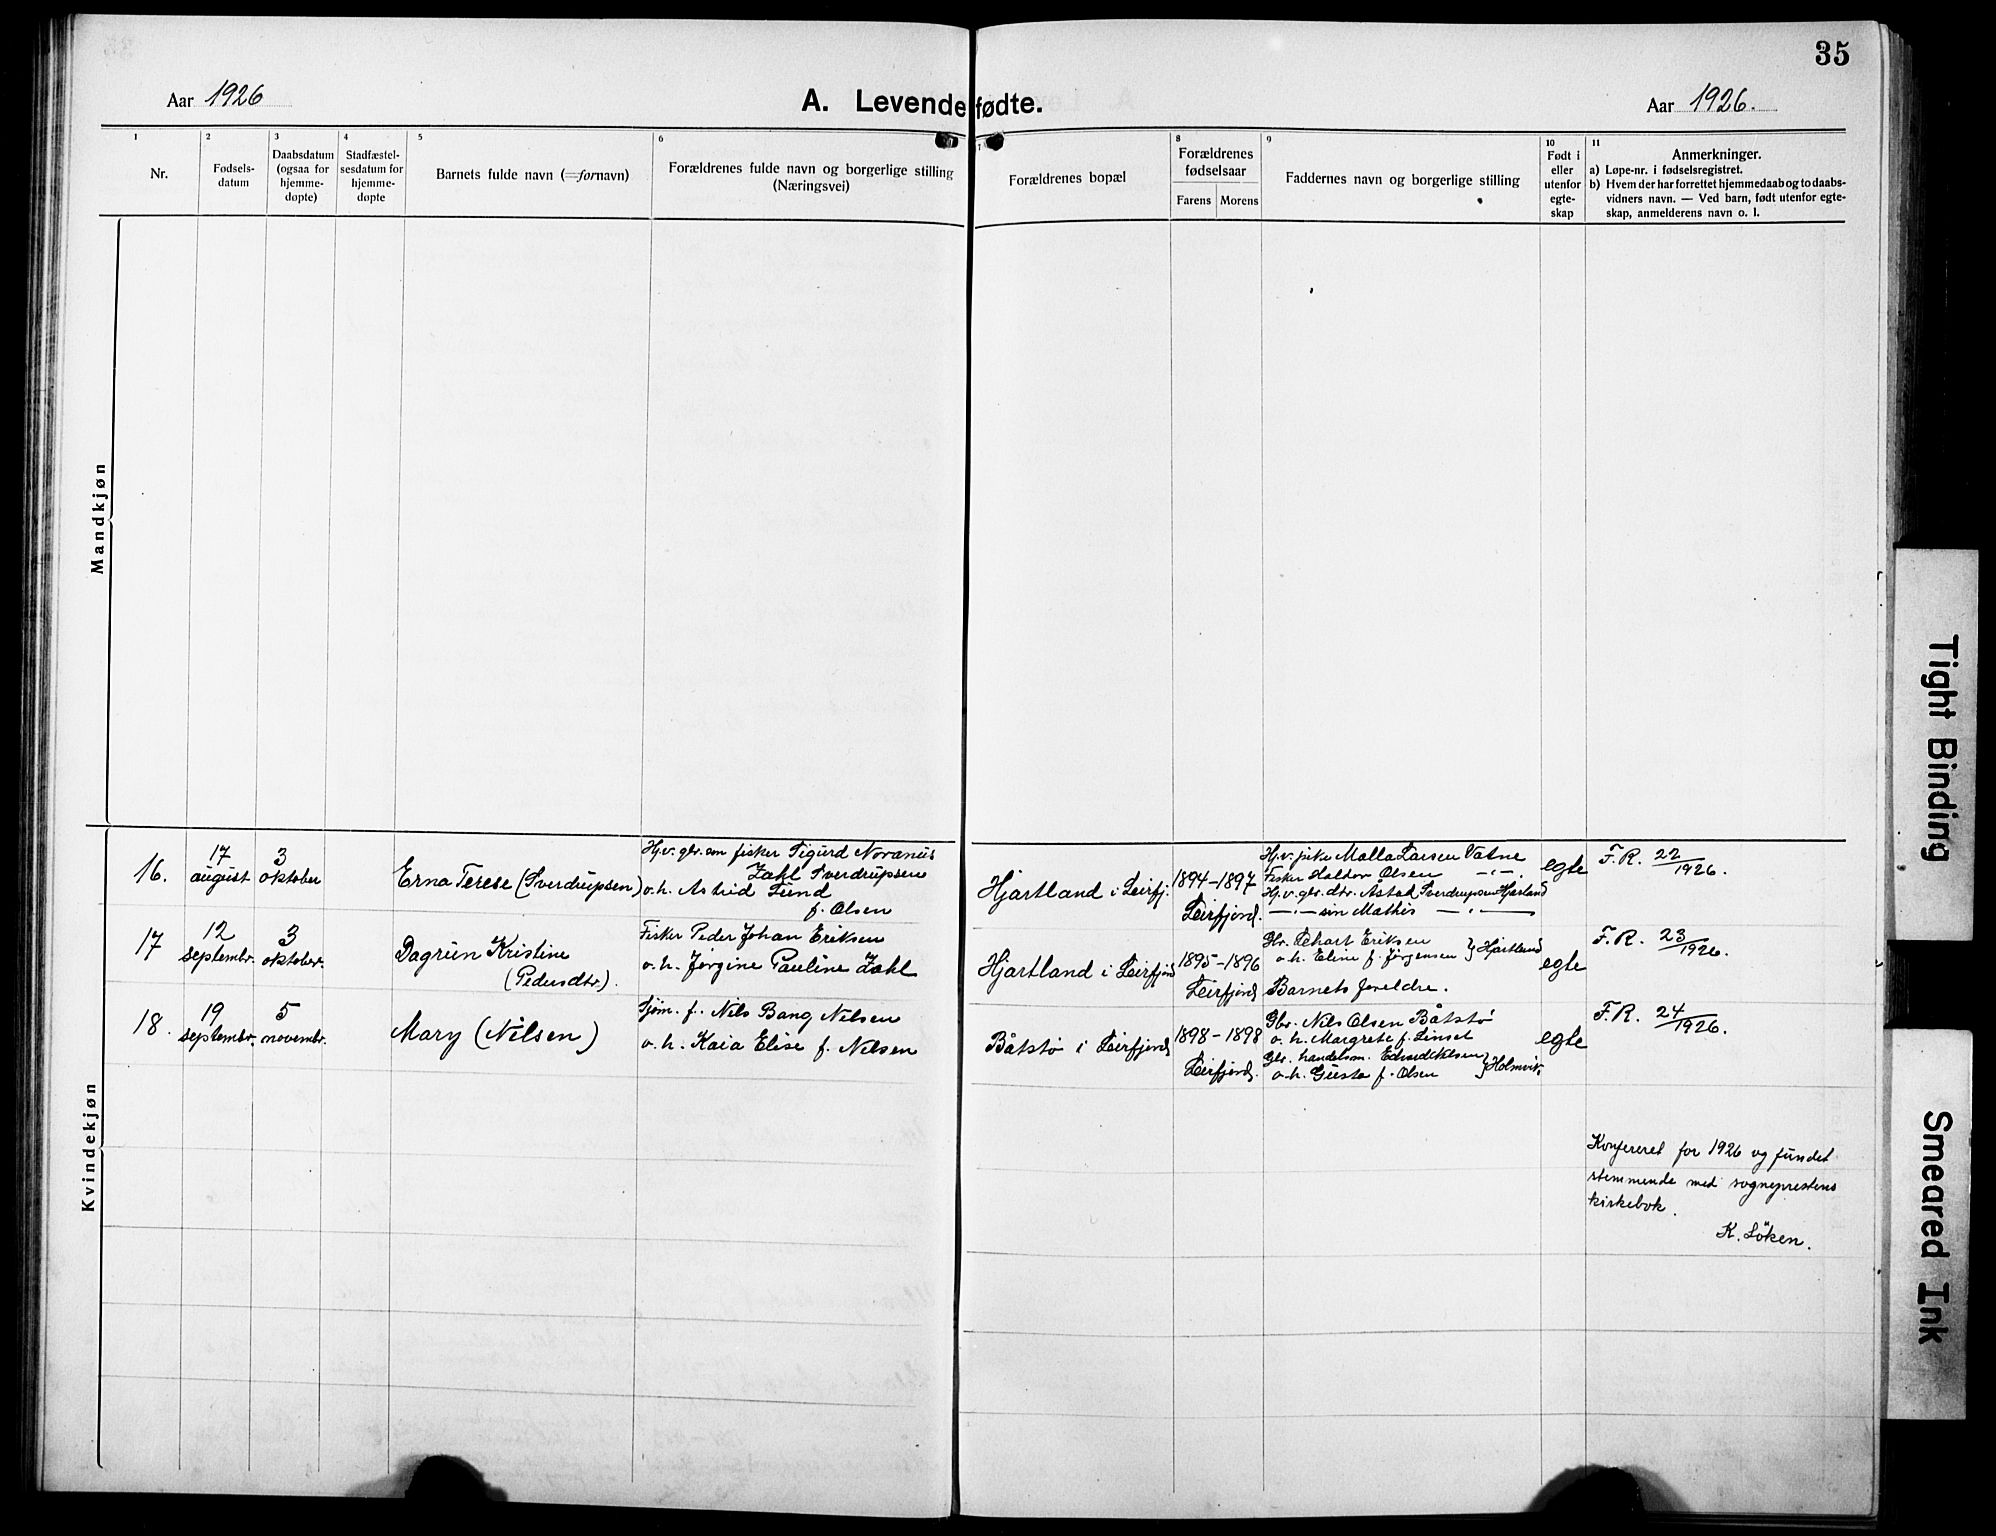 35
Aar 1926
A. Levendefødte.
Aar 1926.
1
Nr.
2
Fødsels-
datum
3
Daabsdatum
(ogsaa for
hjemme-
døpte)
4
Stadfæstel-
sesdatum for
hjemme-
døpte
5
Barnets fulde navn (=fornavn)
6
Forældrenes fulde navn og borgerlige stilling
(Næringsvei)
7
Forældrenes bopæl
8
Forældrenes
fødselsaar
Farens Morens
9
Faddernes navn og borgerlige stilling
10
Født i
eller
utenfor
egte-
skap
11
Anmerkninger.
a) Løpe-nr. i fødselsregistret.
b) Hvem der har forrettet hjemmedaab og to daabs-
vidners navn. — Ved barn, født utenfor egte-
skap, anmelderens navn o. l.
Mandkjøn
Kvindekjøn
16.
17
august
3
oktober
Erna Terese (Sverdrupsen)
Hj.v. gbr. søn fisker Sigurd Noranus
Zahl Sverdrupsen
o. h. Astrid Lund
f. Olsen
Hjartland i Leirfj.
1894-1897
Leirfjord.
Hj.v. pike Malla Larsen Vatne
Fisker Haldor Olsen —„—
Hj.v. gbr. dtr. Åsta Sverdrupsen Hjartland
—„— søn Mathis —„—
egte
F. R. 22/1926.
17
12
septembr.
3
oktober.
Dagrun Kristine
(Pedersdtr.).
Fisker Peder Johan Eriksen
o. h. Jørgine Pauline Zahl
Hjartland i Leirfjord
1895-1896
Leirfjord
Gbr. Edvart Eriksen
o. h. Eline f. Jørgensen } Hjartland
Barnets foreldre.
egte
F. R. 23/1926.
18.
19
septembr.
5
novembr.
Mary (Nilsen)
Sjøm. f. Nils Bang Nilsen
o. h. Kaia Elise f. Nilsen
Båtstø i Leirfjord
1898-1898
Leirfjord.
Gbr. Nils Olsen Båtstø
o. h. Margrete f. Linset
Gbr. handelsm. Edvard Nilsen
o. h. Gusta f. Olsen } Holmvik.
egte
F. R. 24/1926.
Konfereret for 1926 og fundet
stemmende med sogneprestens
kirkebok.
K. Löken.
Tight Binding
Smeared Ink